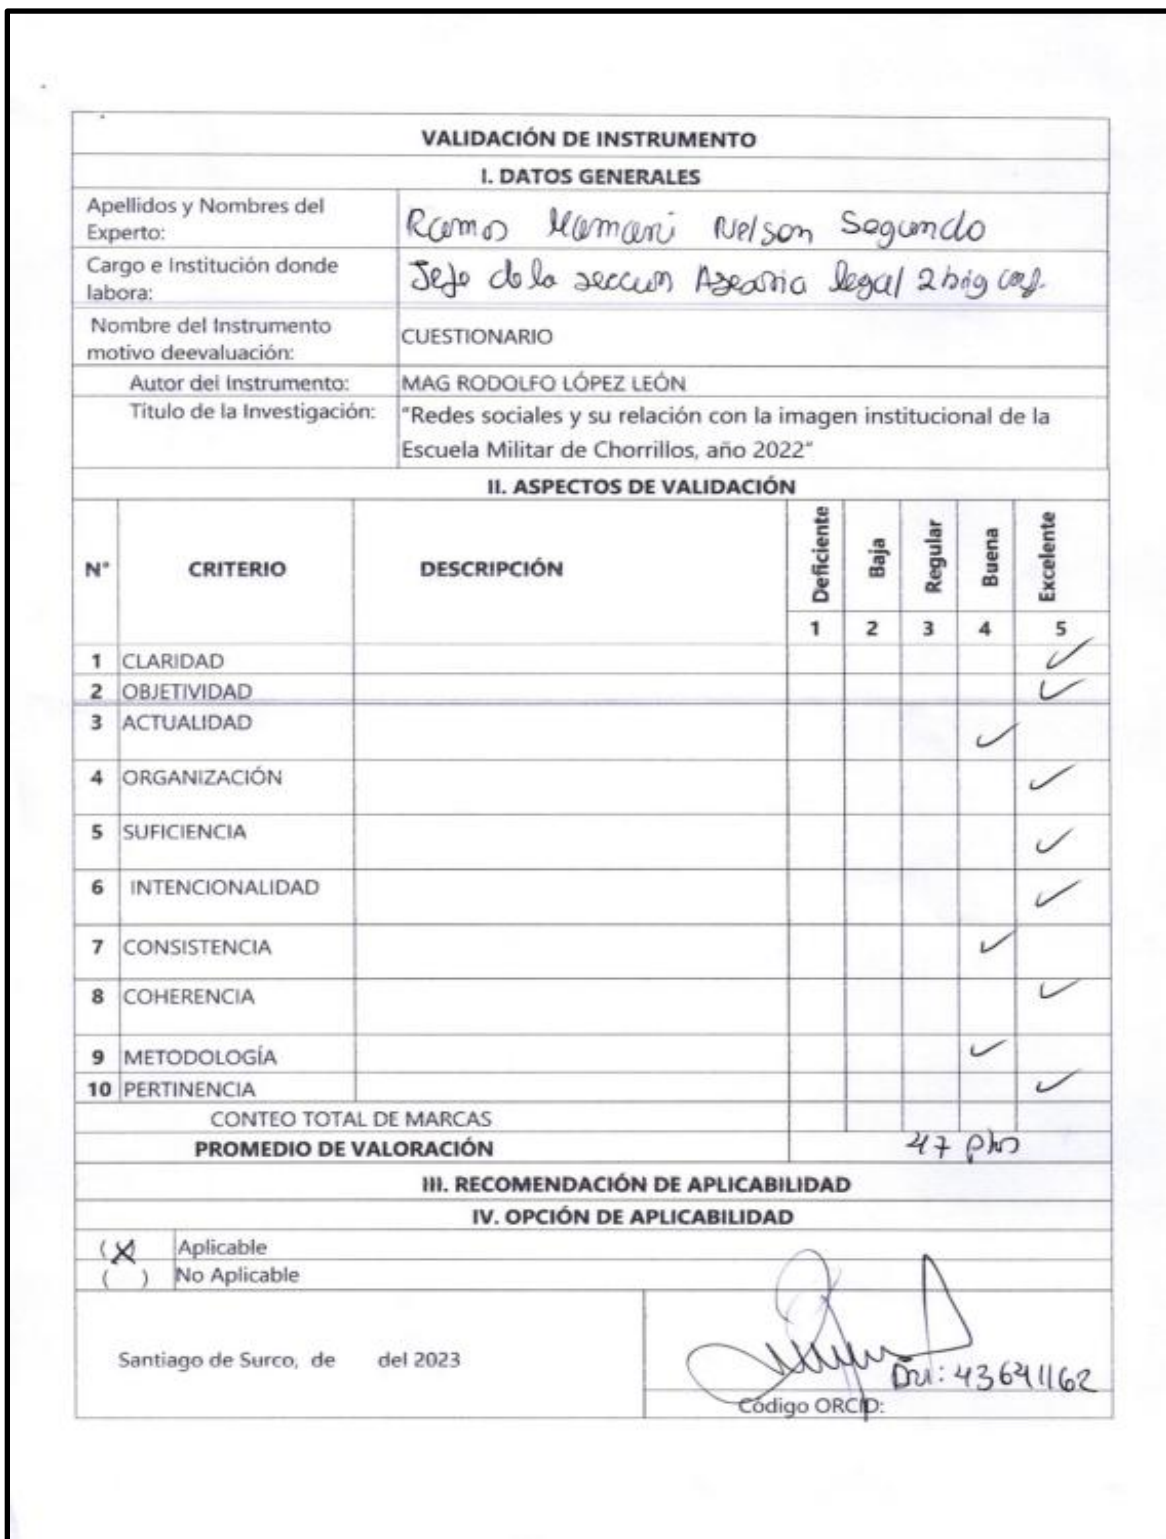 VALIDACIÓN DE INSTRUMENTO
I. DATOS GENERALES
Apellidos y Nombres del
Experto:
Ramos Mamani Nelson Segundo
Cargo e Institución donde
labora:
Jefe de la seccion legal 2 brig
Nombre del Instrumento
motivo deevaluación:
CUESTIONARIO
Autor del Instrumento: MAG RODOLFO LÓPEZ LEÓN
Título de la Investigación: "Redes sociales y su relación con la imagen institucional de la
Escuela Militar de Chorrillos, año 2022"
II. ASPECTOS DE VALIDACIÓN
N° CRITERIO DESCRIPCIÓN Deficiente Baja Regular Buena Excelente
1 2 3 4 5
1 CLARIDAD ✓
2 OBJETIVIDAD ✓
3 ACTUALIDAD ✓
4 ORGANIZACIÓN ✓
5 SUFICIENCIA ✓
6 INTENCIONALIDAD ✓
7 CONSISTENCIA ✓
8 COHERENCIA ✓
9 METODOLOGÍA ✓
10 PERTINENCIA ✓
CONTEO TOTAL DE MARCAS
PROMEDIO DE VALORACIÓN 47 pts
III. RECOMENDACIÓN DE APLICABILIDAD
IV. OPCIÓN DE APLICABILIDAD
(X) Aplicable
( ) No Aplicable
Santiago de Surco, de del 2023
Dni: 43641162
Código ORCID: